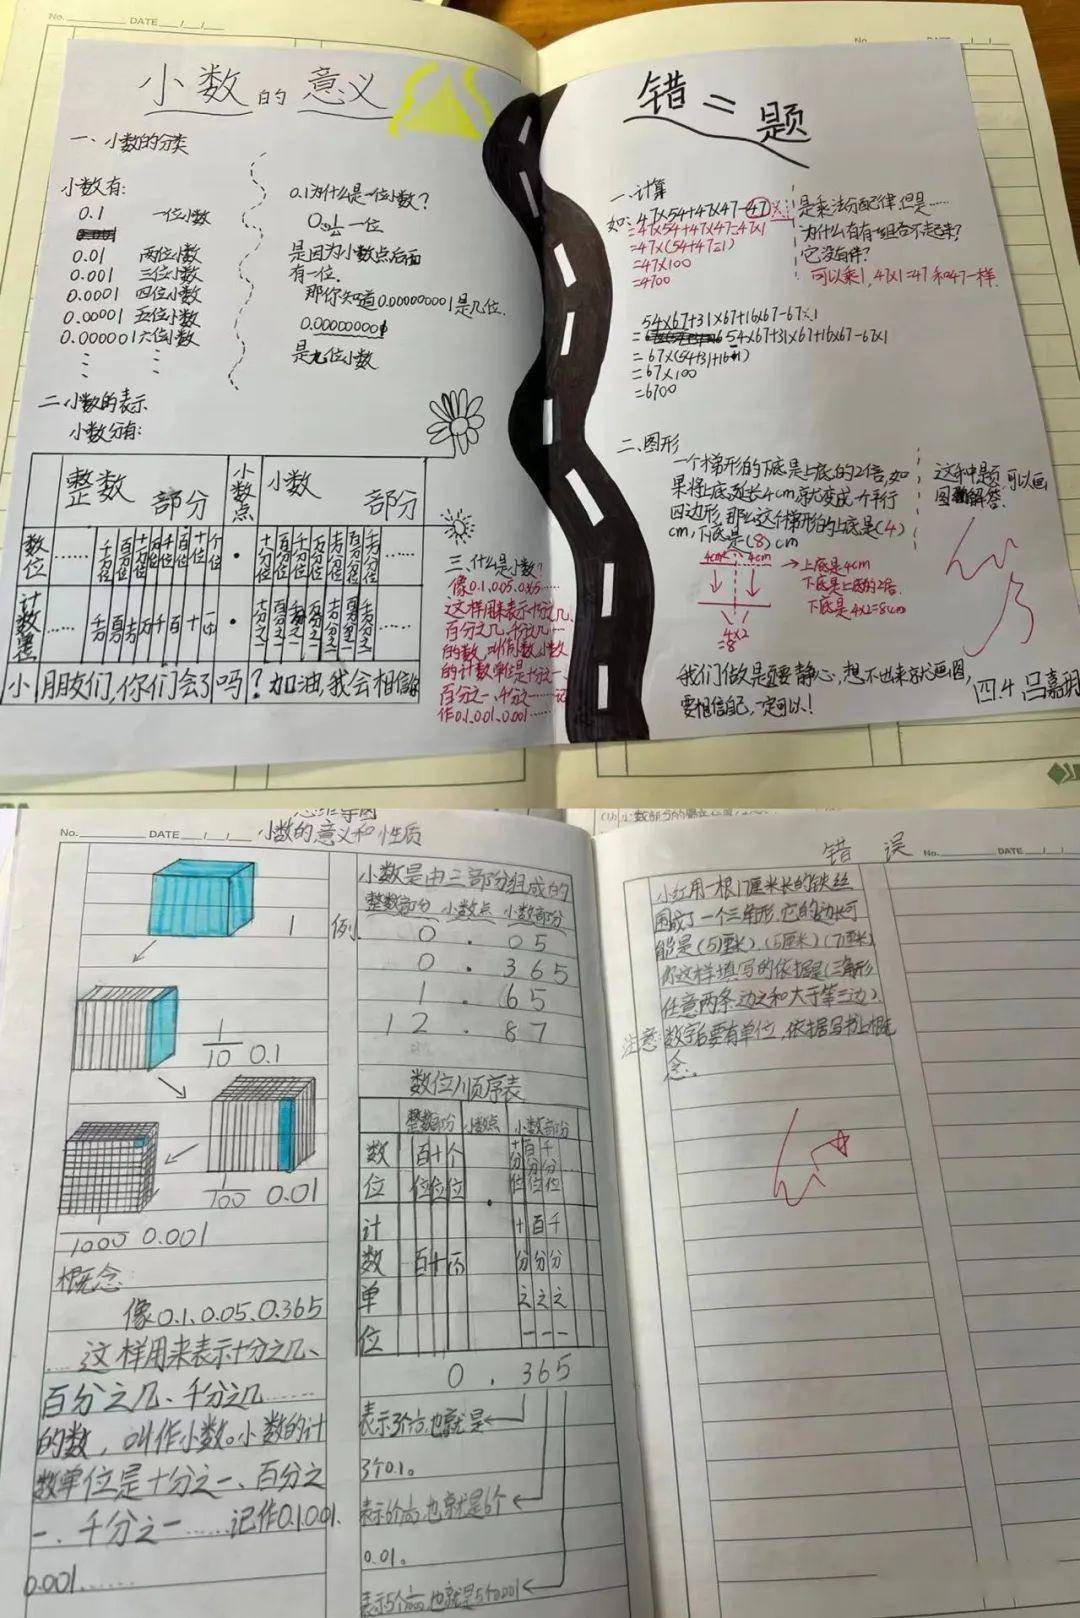 No. DATE
小数的意义
一、小数的分类
小数有:
0.1 一位小数
0.01 两位小数
0.001 三位小数
0.0001 四位小数
0.00001 五位小数
0.000001 六位小数
0.1为什么是一位小数?
一位
是因为小数点后面
有一位.
那你知道0.000000001是几位.
0.00000000
是九位小数
二 小数的表示
小数分有:
整数部分 小数点 小数部分
数位 …… 千万位 百万位 十万位 万位 千位 百位 十位 个位 · 十分位 百分位 千分位 万分位
计数 …… 千万 百万 十万 万 千 百 十 一 · 十分之一 百分之一 千分之一
小朋友们,你们会了吗?加油,我会相信你
三、什么是小数?
像0.1,0.05,0.365……
这样用来表示十分之几、
百分之几、千分之几……
的数,叫作小数,小数
的计数单位是十分之一、
百分之一、千分之一……记
作0.1,0.01,0.001……
错二题
一、计算
如:47×54+47×47-47×1
=47×54+47×47-47×1
=47×(54+47-1)
=47×100
=4700
是乘法分配律,但是……
为什么有有一组合不起来?
它没有伴?
可以乘1,47×1=47和47一样.
54×67+31×67+16×67-67×1
=54×67+31×67+16×67-67×1
=67×(54+31+16-1)
=67×100
=6700
二、图形
一个梯形的下底是上底的2倍,如
果将上底延长4cm,就变成一个平行
四边形,那么这个梯形的上底是(4)
cm,下底是(8)cm
这种题,可以画
图解答.
4cm 4cm
→上底是4cm
下底是上底的2倍.
下底是4×2=8cm
4×2
=8
我们做题要静心,想不出来就画图,
要相信自己,一定可以!
四.4 吕嘉玥
No. DATE
小数的意义和性质
1
1/10 0.1
1/100 0.01
1/1000 0.001
概念:
像0.1、0.05、0.365
……这样用来表示十分之几、
百分之几、千分之几……
的数,叫作小数。小数的计
数单位是十分之一、百分之
一、千分之一……记作0.1、0.01、
0.001……
小数是由三部分组成的
整数部分 小数点 小数部分
例
0 . 05
0 . 365
1 . 65
12 . 87
数位顺序表
整数部分 小数点 小数部分
数位 百位 十位 个位 · 十分位 百分位 千分位 …
计数单位 百 十 个 十分之一 百分之一 千分之一
0 . 365
表示3个1/10,也就是
3个0.1。
表示6个1/100,也就是6个
0.01。
表示5个1/1000,也就是5个0.001
错误 No. DATE
小红用一根17厘米长的铁丝
围成了一个三角形,它的边长可
能是(5厘米)、(5厘米)(7厘米)
你这样填写的依据是(三角形
任意两条边之和大于第三边)
注意:数字后要有单位,依据写书上概
念。